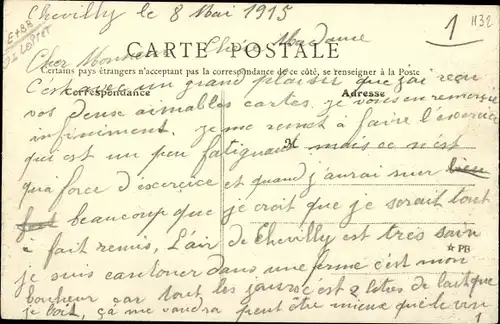 Chevilly le 8 Mai 1915
1
1132
E+88
D2 Loiret
CARTE POSTALE
Cher Monsieur Chère Madame
Certains pays étrangers n'acceptant pas la correspondance de ce côté, se renseigner à la Poste
Correspondance
Adresse
C'est avec un grand plaisir que j'ai reçu
vos deux aimables cartes je vous en remercie
infiniment. je me remet à faire l'exercice
M
qui est un peu fatiguant mais ce n'est
qu'a force d'exercice et quand j'aurai
beaucoup que je croit que je serait tout
à fait remis, L'air de Chevilly est très sain
★ PB
je suis cantonner dans une ferme c'est mon
bonheur car tout les jours c'est 2 litres de lait que
je boit, ça me vaudra peut être mieux que le vin
1